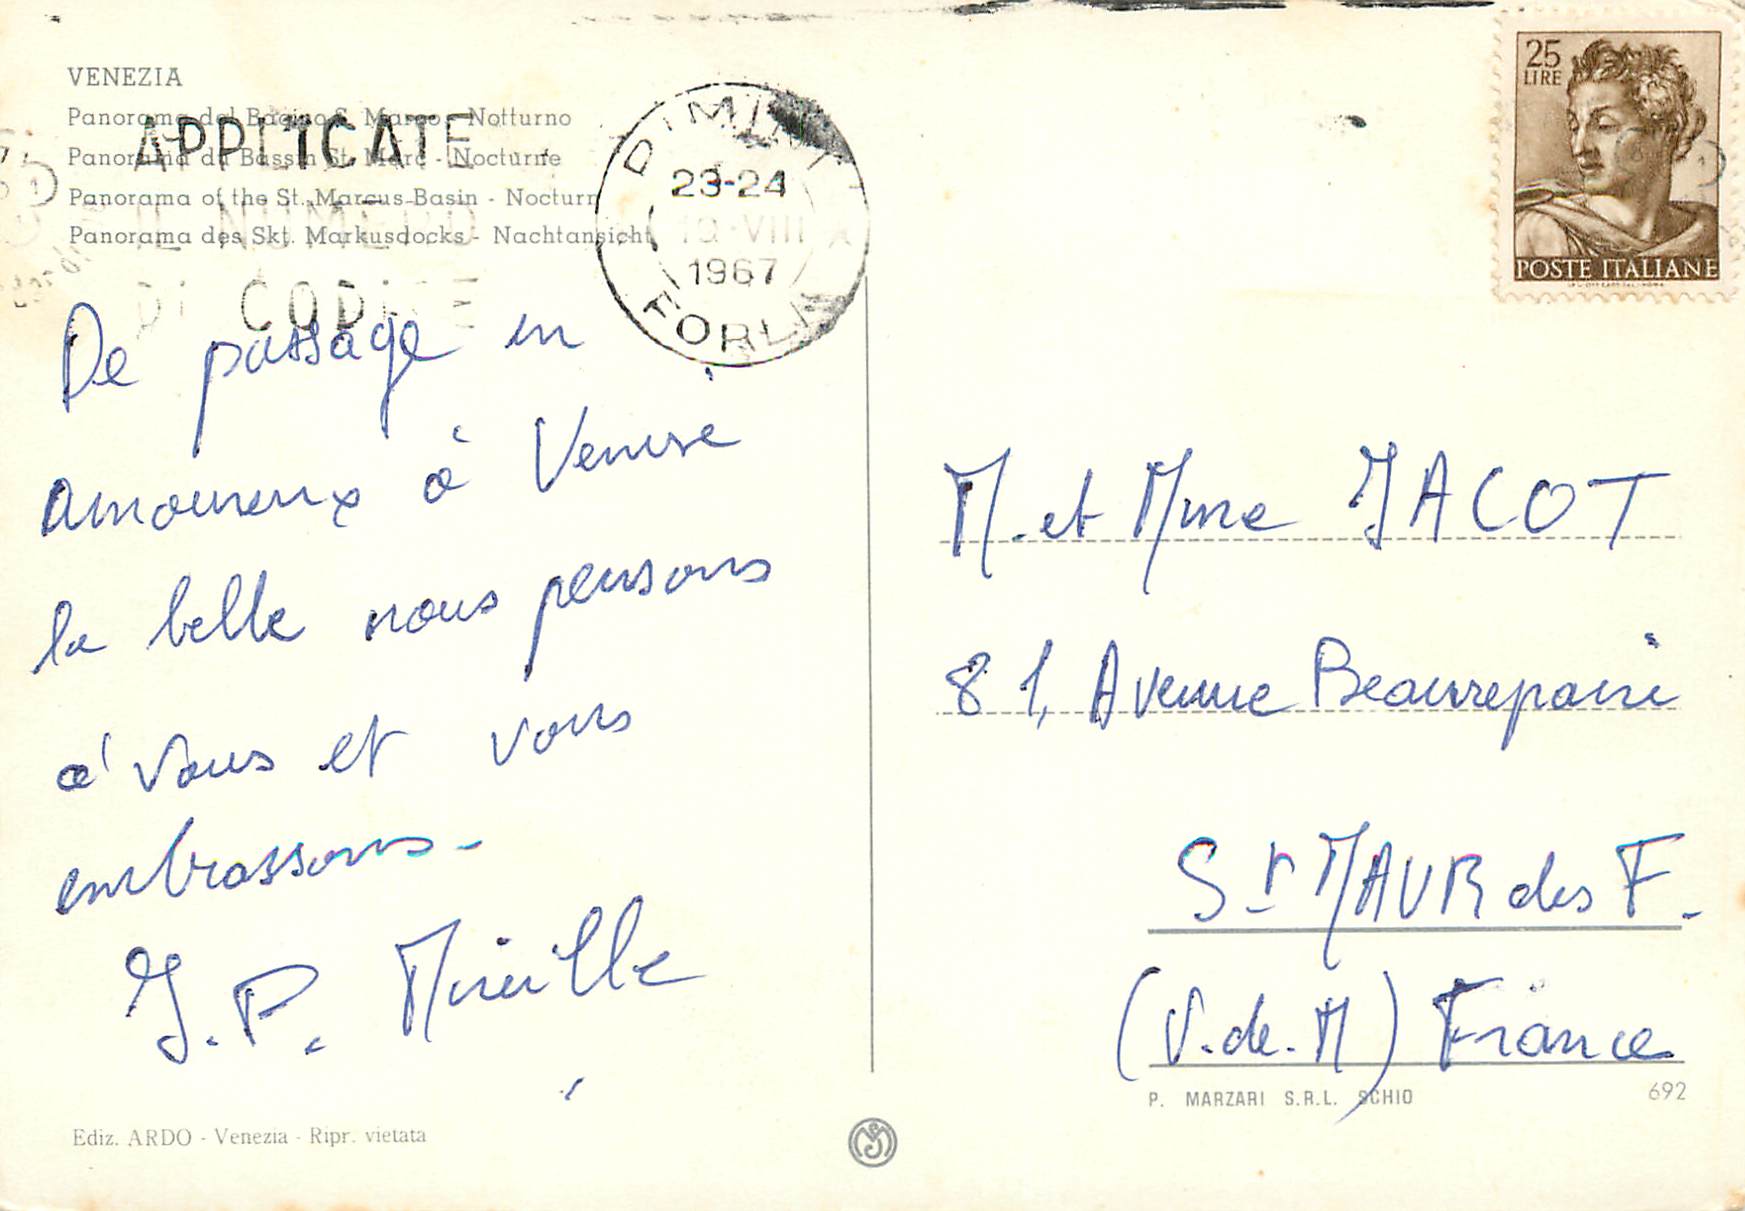 VENEZIA
Panorama del Bacino S. Marco - Notturno
Panorama du Bassin St. Marc - Nocturne
Panorama of the St. Marcus Basin - Nocturn
Panorama des Skt. Markusdocks - Nachtansicht
APPLICATE
IL NUMERO
DI CODICE
23-24
VIII
1967
FORLI
25
LIRE
POSTE ITALIANE
De passage en
amoureux à Venise
la belle nous pensons
à vous et vous
embrassons-
J.P. Mireille
M. et Mme JACOT
81, Avenue Beaurepaire
St MAUR des F.
(V.de.M) France
P. MARZARI S.R.L. SCHIO
692
Ediz. ARDO - Venezia - Ripr. vietata